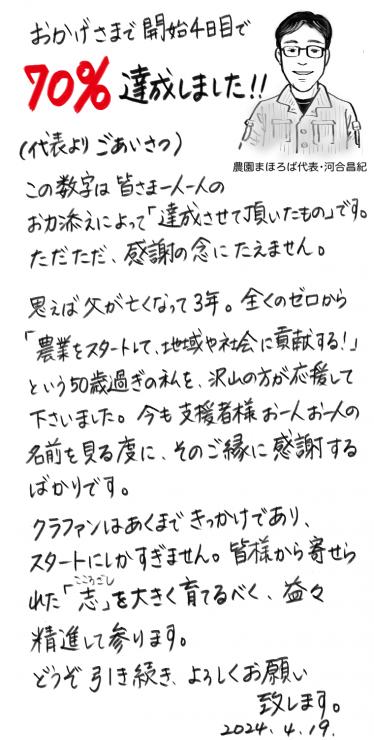 おかげさまで開始4日目で
70%達成しました!!
(代表より ごあいさつ)
農園まほろば代表・河合昌紀
この数字は皆さま一人一人の
お力添えによって「達成させて頂いたもの」です。
ただただ、感謝の念にたえません。
思えば父が亡くなって3年。全くのゼロから
「農業をスタートして、地域や社会に貢献する!」
という50歳過ぎの私を、沢山の方が応援して
下さいました。今も支援者様お一人お一人の
名前を見る度に、そのご縁に感謝する
ばかりです。
クラファンはあくまできっかけであり、
スタートにしかすぎません。皆様から寄せら
こころざし
れた「志」を大きく育てるべく、益々
精進して参ります。
どうぞ引き続き、よろしくお願い
致します。
2024.4.19.